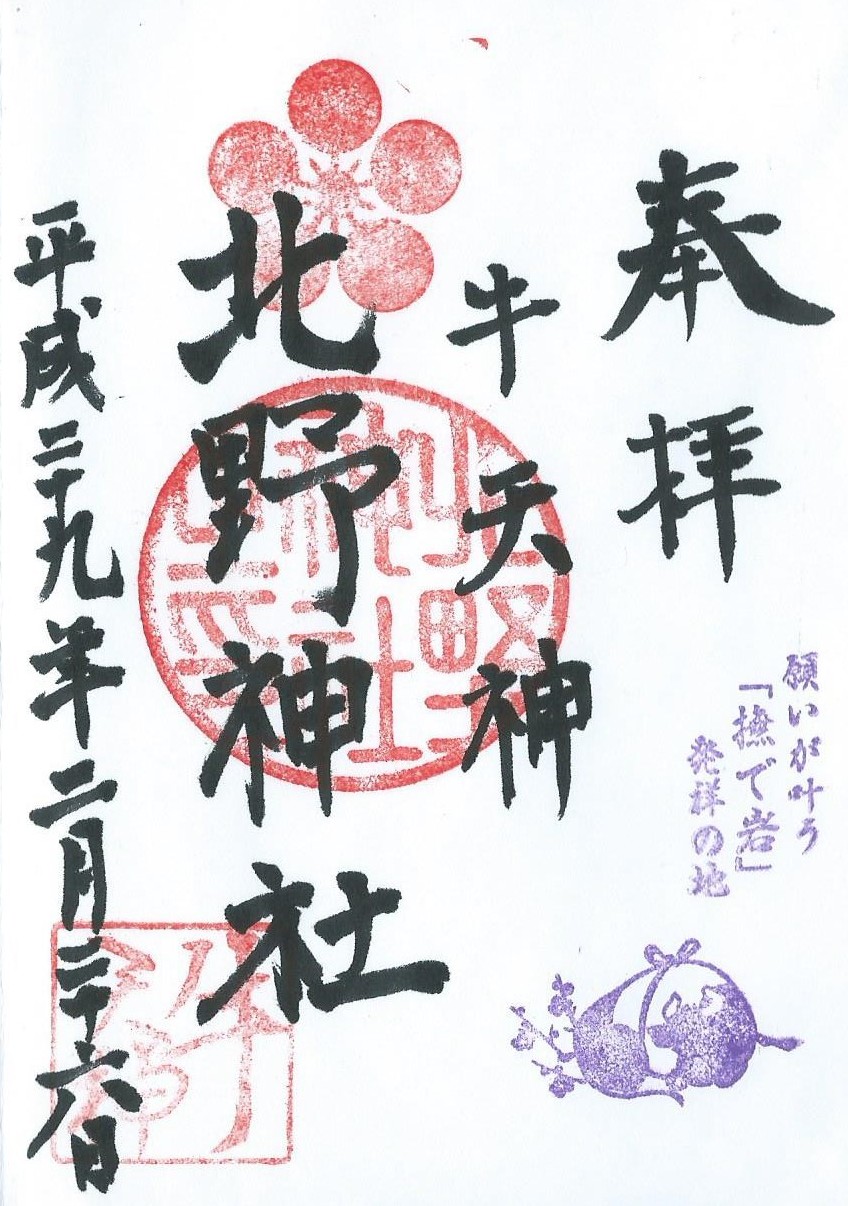 奉拝
願いが叶う
「撫で岩」
発祥の地
牛天神
北野神社
平成二十九年二月二十六日
北野神社
牛天神